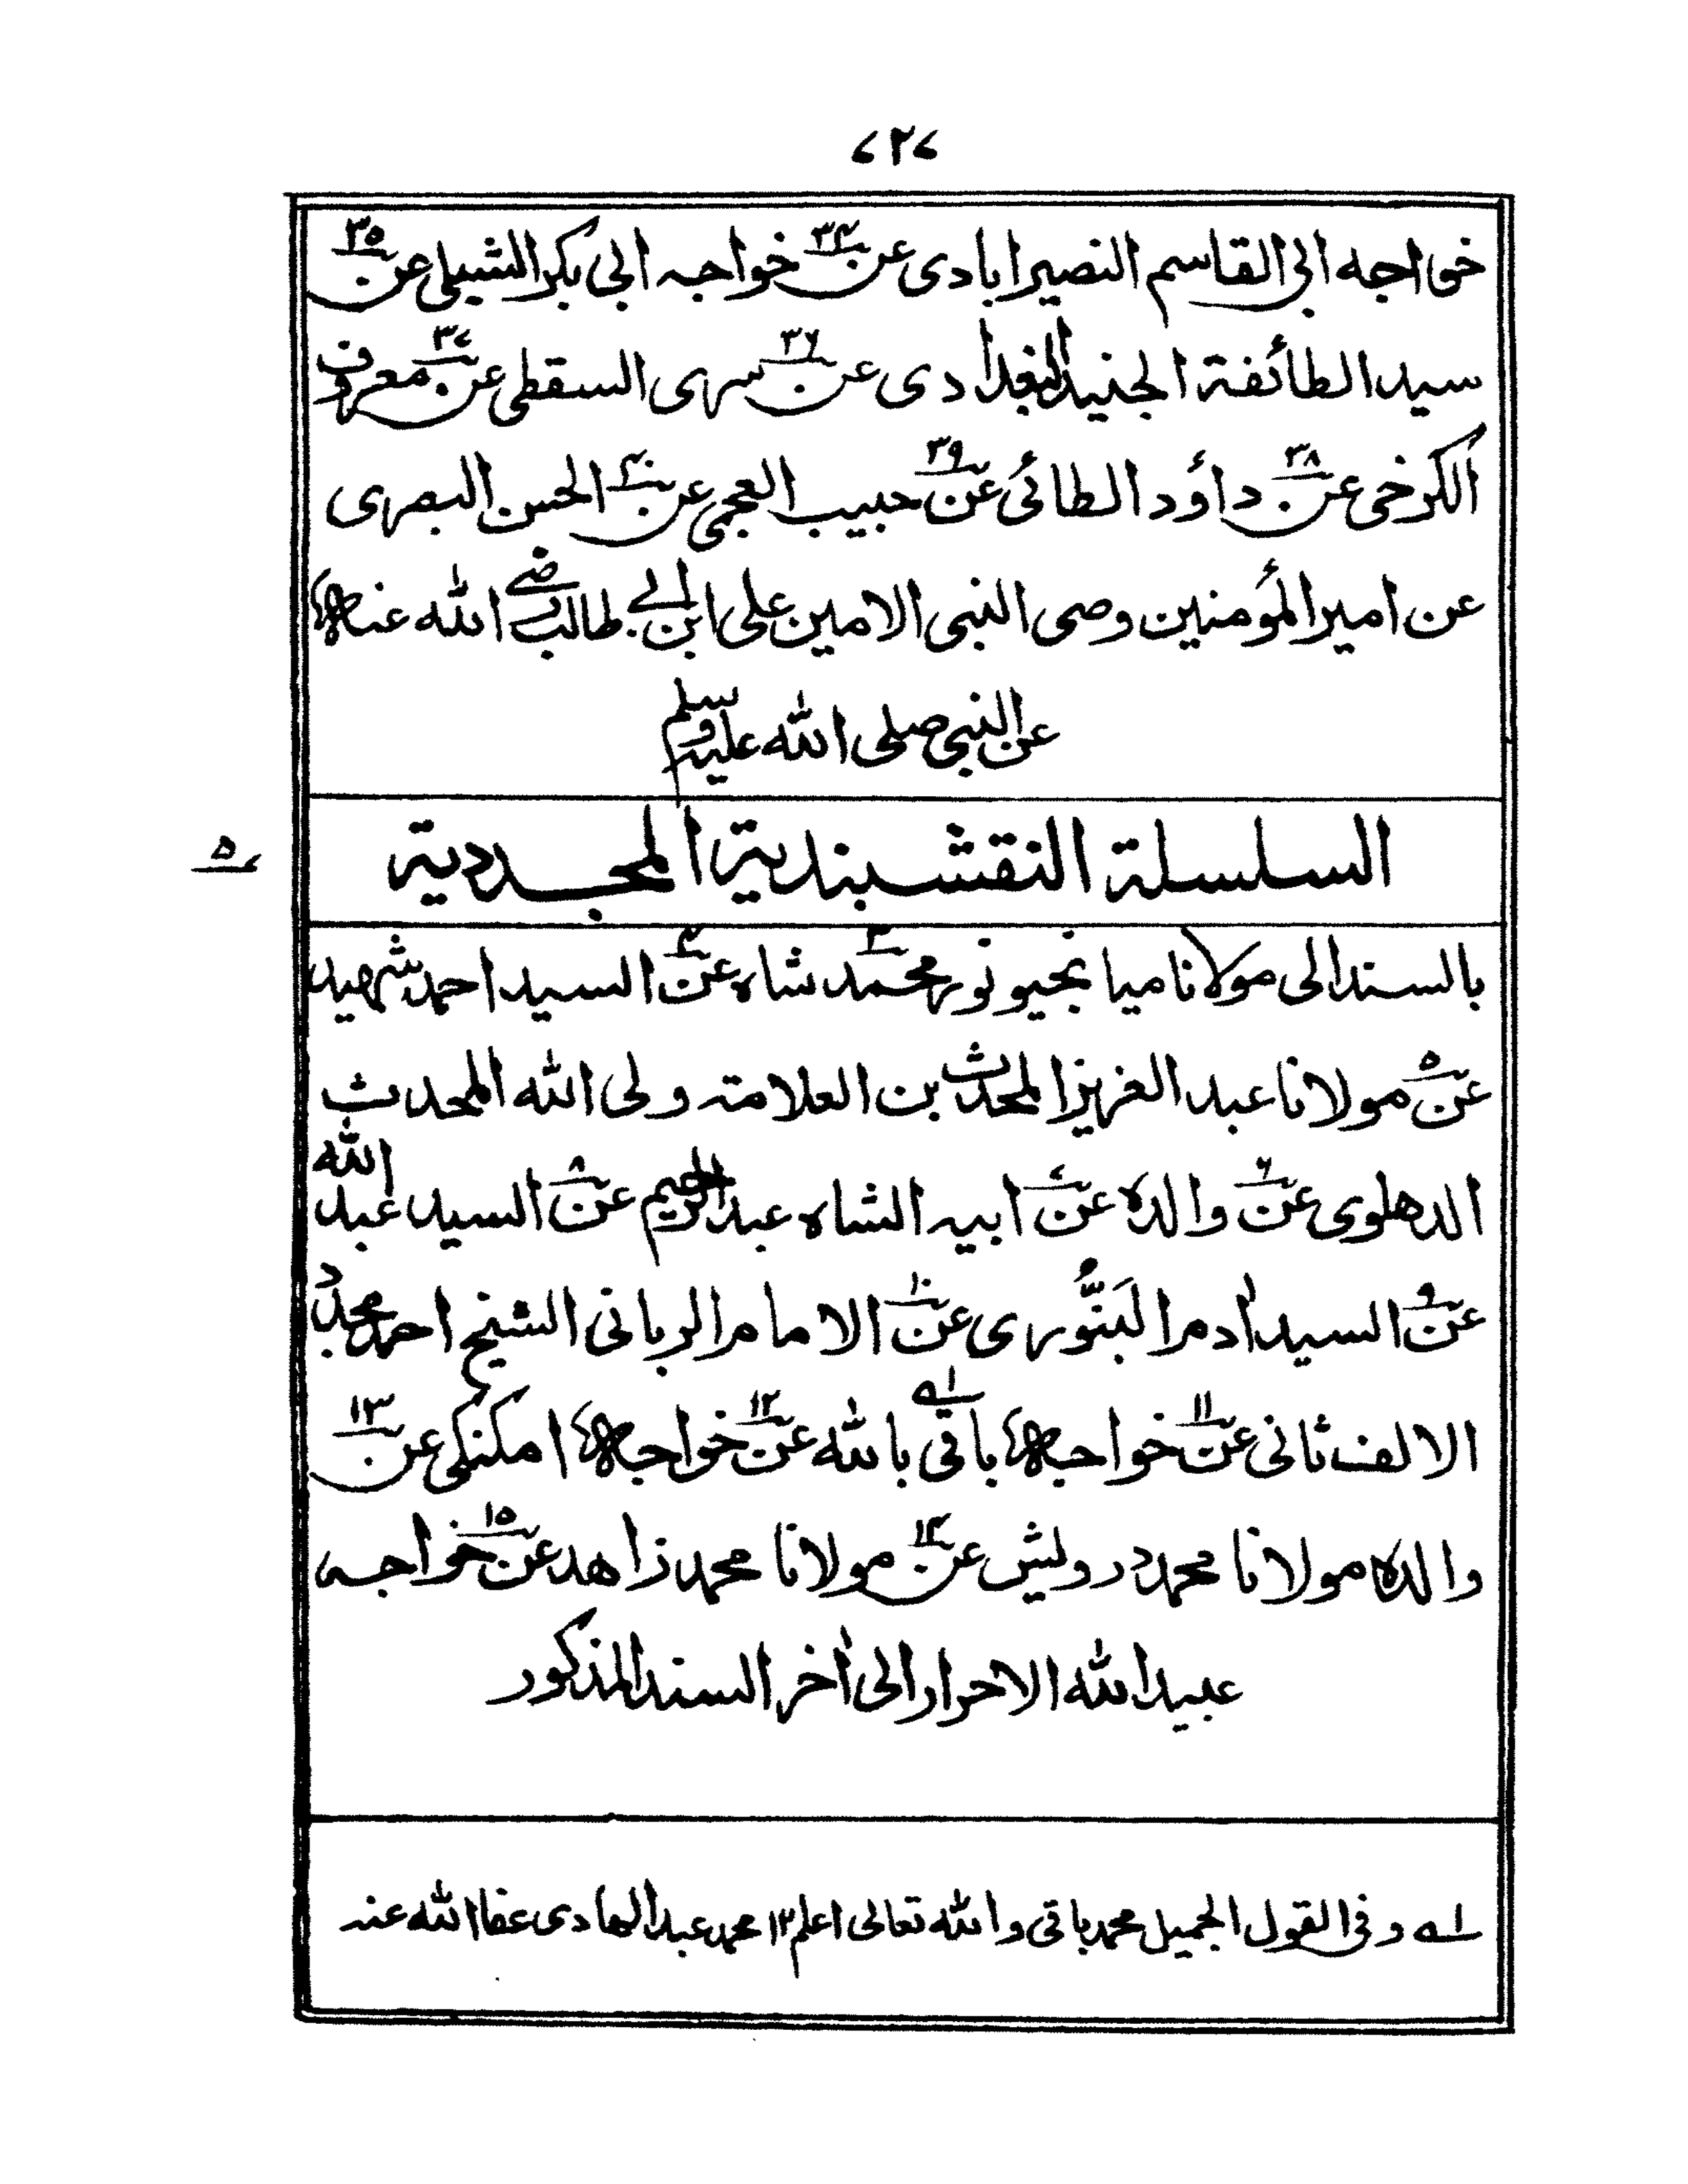 ٧٢٧
خواجه ابی القاسم النصیرابادی عن ٣٤ خواجہ ابی بکر الشبلی عن ٣٥
سید الطائفۃ الجنید البغدادی عن ٣٦ سری السقطی عن ٣٧ معروف
الکرخی عن ٣٨ داؤد الطائی عن ٣٩ حبیب العجمی عن ٤٠ الحسن البصری
عن امیر المؤمنین وصی النبی الامین علی ابن ابی طالب رضی اللہ عنہ
عن النبی صلی اللہ علیہ وسلم
٥٧
السلسلۃ النقشبندیۃ المجددیۃ
بالسند الی مولانا میا نجیو نور محمد ٣ شاہ عن ٤ السید احمد شہید
عن ٥ مولانا عبد العزیز المحدث بن العلامۃ ولی اللہ المحدث
الدھلوی عن ٦ والدہ عن ٧ ابیہ الشاہ عبد الرحیم عن ٨ السید عبد اللہ
عن ٩ السید اٰدم البَنُّوری عن ١٠ الامام الربانی الشیخ احمد مجدد
الالف ثانی عن ١١ خواجہ باقی ١ـه باللہ عن ١٢ خواجہ امکنکی عن ١٣
والدہ مولانا محمد درویش عن ١٤ مولانا محمد زاھد عن ١٥ خواجہ
عبید اللہ الاحرار الی اٰخر السند المذکور
١ـه وفی القول الجمیل محمد باقی واللہ تعالی اعلم ١٣ محمد عبد الھادی عفا اللہ عنہ